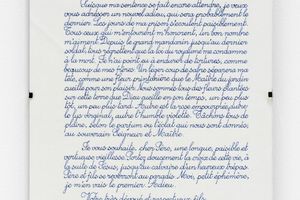 Puisque ma sentence se fait encore attendre, je veux
vous adresser un nouvel adieu, qui sera probablement le
dernier. Les jours de ma prison s'écoulent paisiblement.
Tous ceux qui m'entourent m'honorent, un bon nombre
m'aiment. Depuis le grand mandarin jusqu'au dernier
soldat, tous regrettent que la loi du royaume me condamne
à la mort. Je n'ai point eu à endurer de tortures, comme
beaucoup de mes frères. Un léger coup de sabre séparera ma
tête, comme une fleur printanière que le Maître du jardin
cueille pour son plaisir. Nous sommes tous des fleurs plantées
sur cette terre que Dieu cueille en son temps, un peu plus
tôt, un peu plus tard. Autre est la rose empourprée, autre
le lys virginal, autre l'humble violette. Tâchons tous de
plaire, selon le parfum ou l'éclat qui nous sont donnés,
au souverain Seigneur et Maître.
Je vous souhaite, cher Père, une longue, paisible et
vertueuse vieillesse. Portez doucement la croix de cette vie, à
la suite de Jésus, jusqu'au calvaire d'un heureux trépas.
Père et fils se reverront au paradis. Moi, petit éphémère,
je m'en vais le premier. Adieu.
Votre très dévoué et respectueux fils.